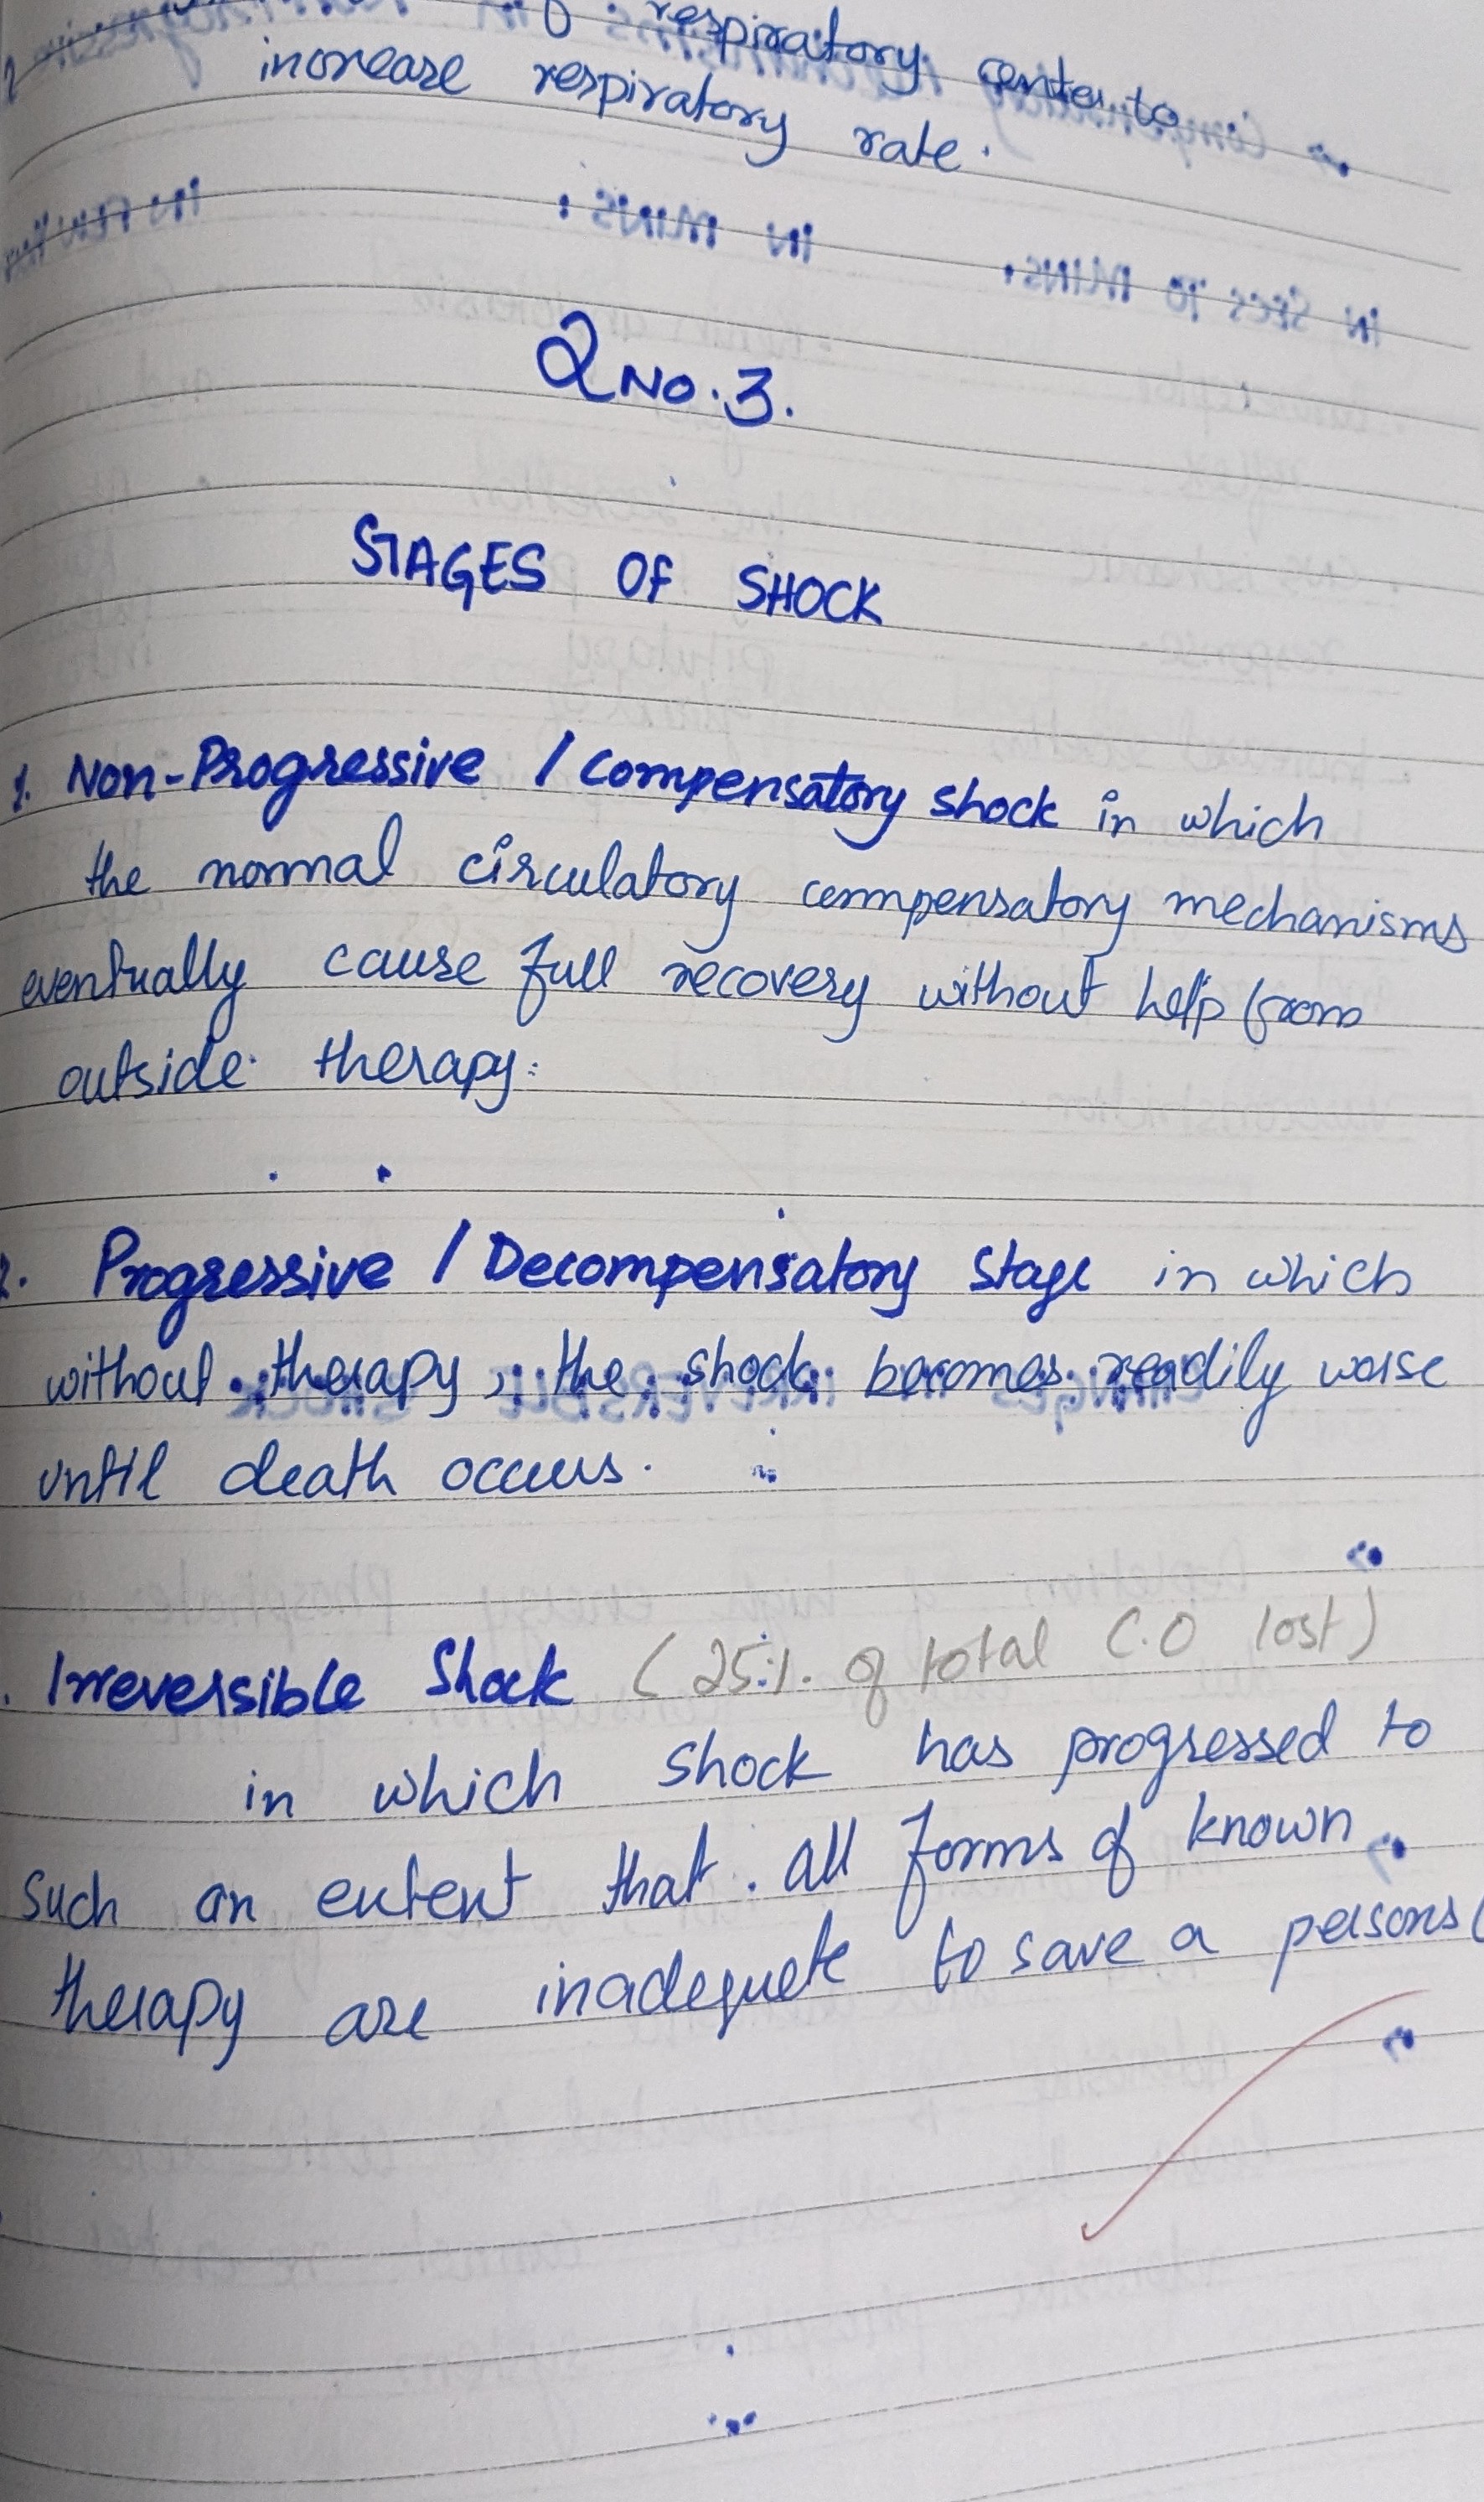 respiratory center to
increase respiratory rate.
Q No. 3.
STAGES OF SHOCK
1. Non-Progressive / Compensatory shock in which
the normal circulatory compensatory mechanisms
eventually cause full recovery without help from
outside therapy.
2. Progressive / Decompensatory Stage in which
without therapy, the shock becomes readily worse
until death occurs.
Irreversible Shock (25%. of total C.O lost)
in which shock has progressed to
Such an extent that all forms of known
therapy are inadequate to save a persons